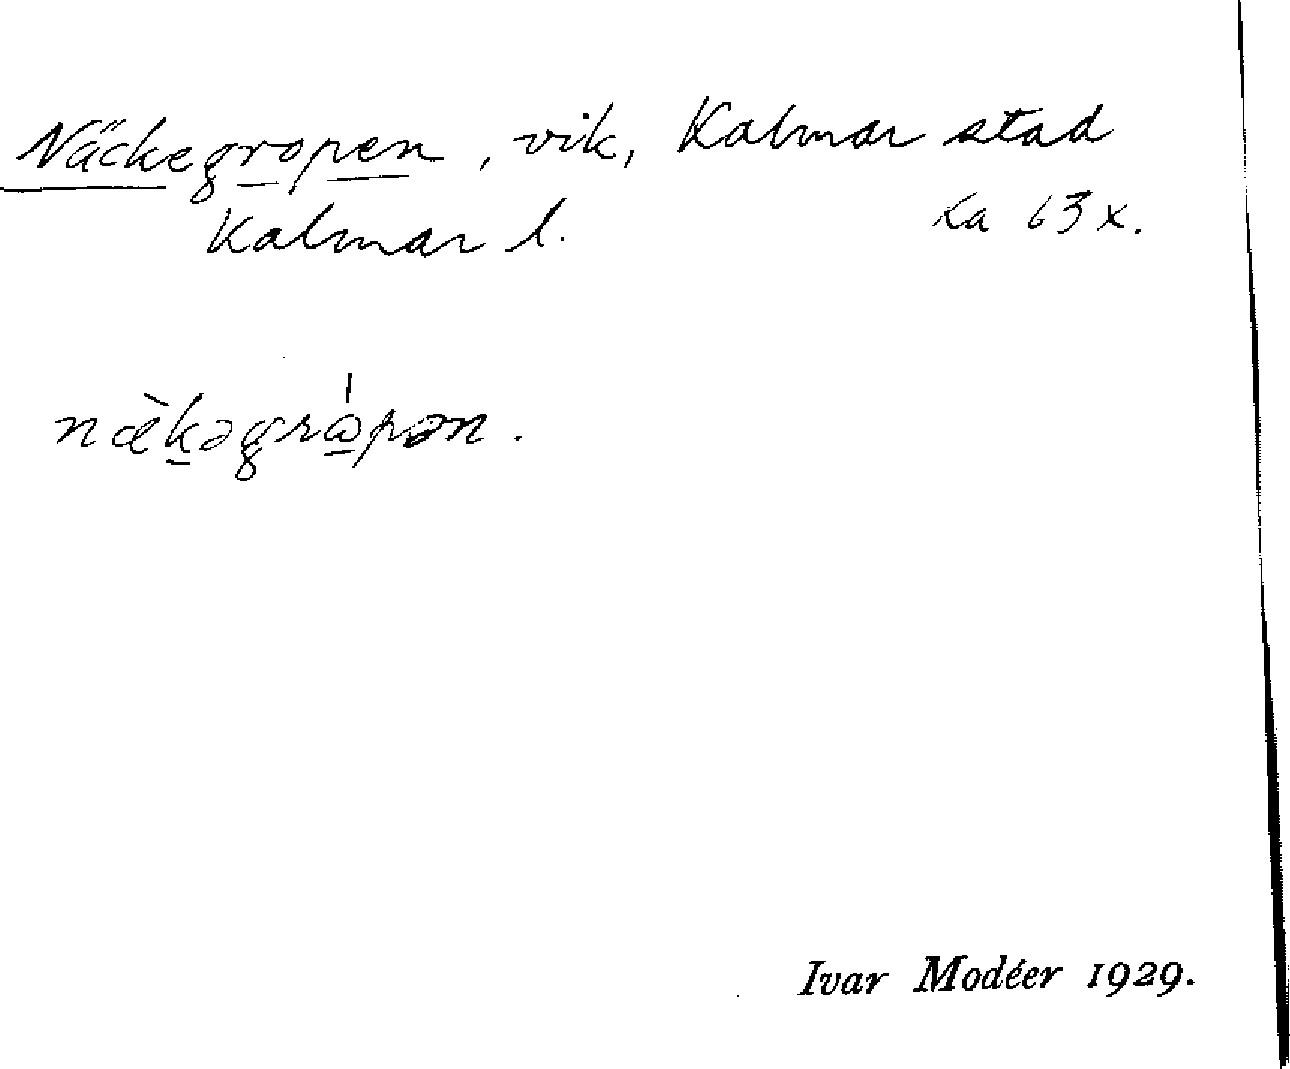 Näckegropen, vik, Kalmar stad
Kalmar l. Ka 63 x.
næ̀kəgrɷ́pən.
Ivar Modéer 1929.